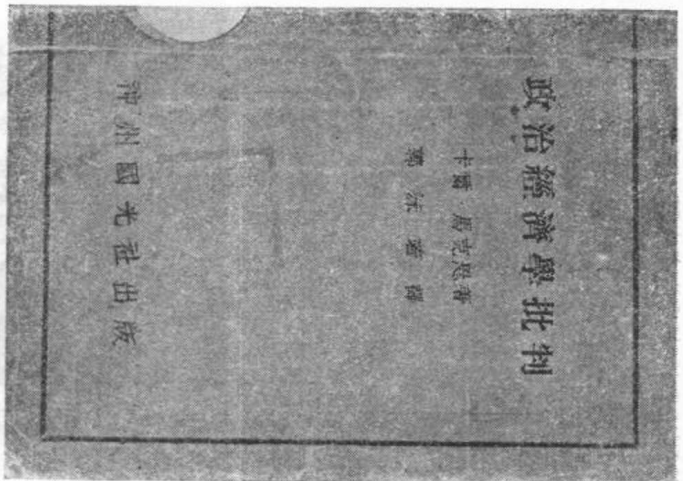 政治經濟學批判
卡爾・馬克思著
郭沫若譯
神州國光社出版